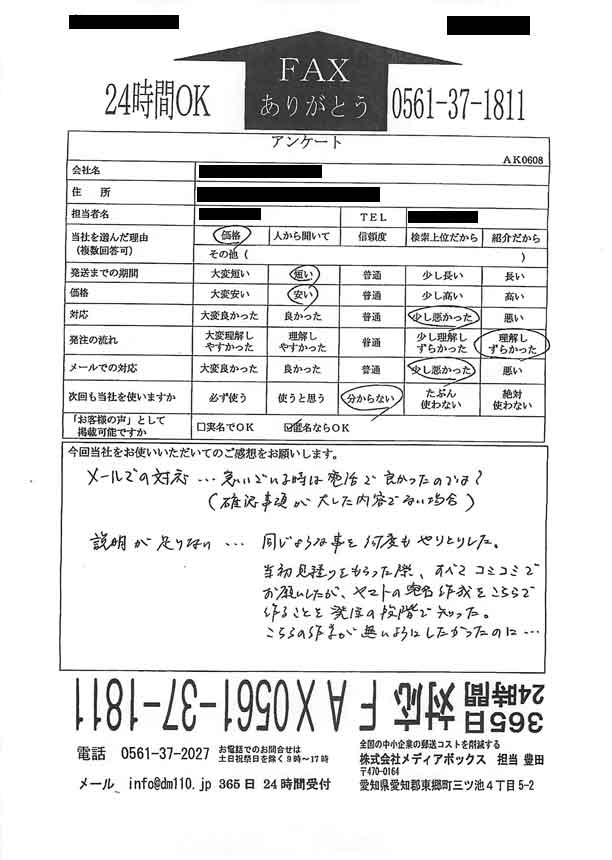 FAX
ありがとう
24時間OK
0561-37-1811
アンケート
AK0608
会社名
住 所
担当者名 TEL
当社を選んだ理由 (複数回答可) 価格 人から聞いて 信頼度 検索上位だから 紹介だから
その他 ( )
発送までの期間 大変短い 短い 普通 少し長い 長い
価格 大変安い 安い 普通 少し高い 高い
対応 大変良かった 良かった 普通 少し悪かった 悪い
発注の流れ 大変理解しやすかった 理解しやすかった 普通 少し理解しずらかった 理解しずらかった
メールでの対応 大変良かった 良かった 普通 少し悪かった 悪い
次回も当社を使いますか 必ず使う 使うと思う 分からない たぶん使わない 絶対使わない
「お客様の声」として掲載可能ですか □実名でOK ☑匿名ならOK
今回当社をお使いいただいてのご感想をお願いします。
メールでの対応… 急いでいる時は電話で良かったのでは?
(確認事項が大した内容でない場合)
説明が足りない… 同じような事を何度もやりとりした。
当初見積りをもらった際、すべてコミコミで
お願いしたが、ヤマトの宛名作成をこちらで
作ることを発注の段階で知った。
こちらの作業が無いようにしたかったのに…
365日
24時間
対応 FAX0561-37-1811
電話 0561-37-2027 お電話でのお問合せは
土日祝祭日を除く9~17時
メール info@dm110.jp 365日24時間受付
全国の中小企業の郵送コストを削減する
株式会社メディアボックス 担当 豊田
〒470-0164
愛知県愛知郡東郷町三ツ池4丁目5-2